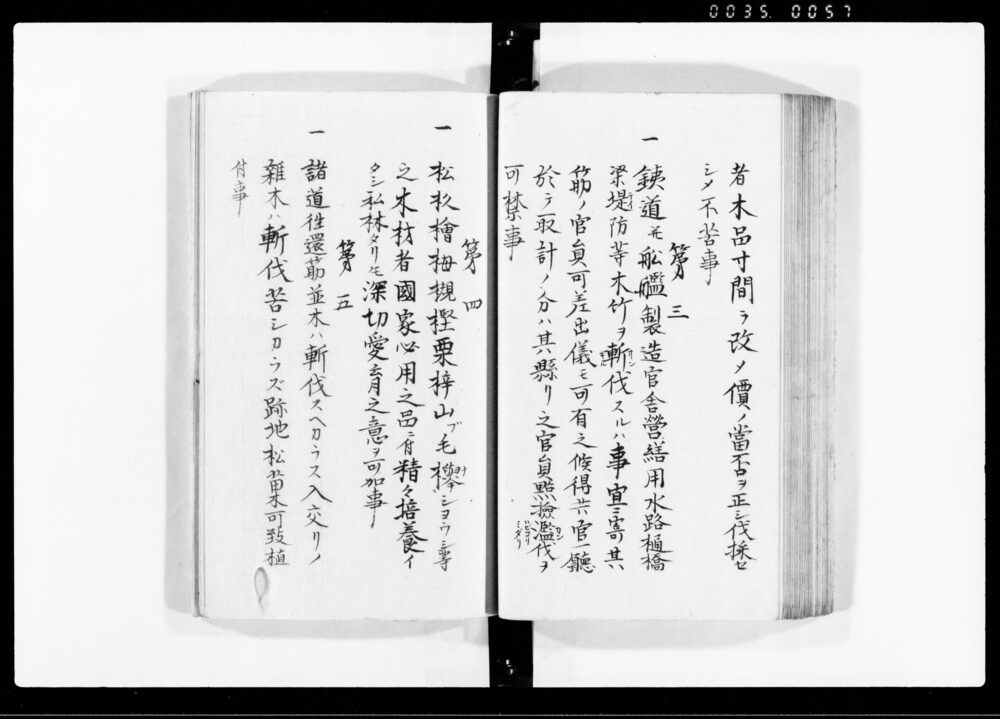 0035. 0057
者木品寸間ヲ改メ價ノ當否ヲ正シ伐採セ
シメ不苦事
第三
一 鉄道并船艦製造官舎營繕用水路樋橋
梁堤防等木竹ヲ斬伐スルハ事宜ニ寄其
筋ノ官員可差出儀モ可有之候得共官廳ニ
於テ取計ノ分ハ其縣リ之官員點撿濫伐ヲ
可禁事
第四
一 松杦檜栂槻樫栗梓山ブ毛欅シヨウシ等
之木材者國家必用之品ニ付精々培養イ
タシ私林タリトモ深切愛育之意ヲ可加事
第五
一 諸道徃還筋並木ハ斬伐スヘカラス入交リノ
雜木ハ斬伐苦シカラズ跡地松苗木可致植
付事